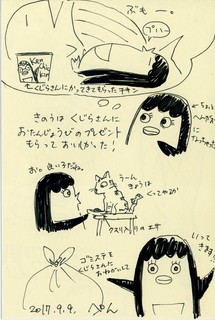 ぶもー。
プハー
Ken
くじらさんにかってきてもらったチキン
きのうはくじらさんに
おたんじょうびのプレゼント
もらっておいわいだった！
お。良い子だね。
うーん
きょうは
くってやるか
クスリ入りのエサ
いって
きます
ゴミステを
くじらさんに
おねがいして
2017.9.9. ぺん